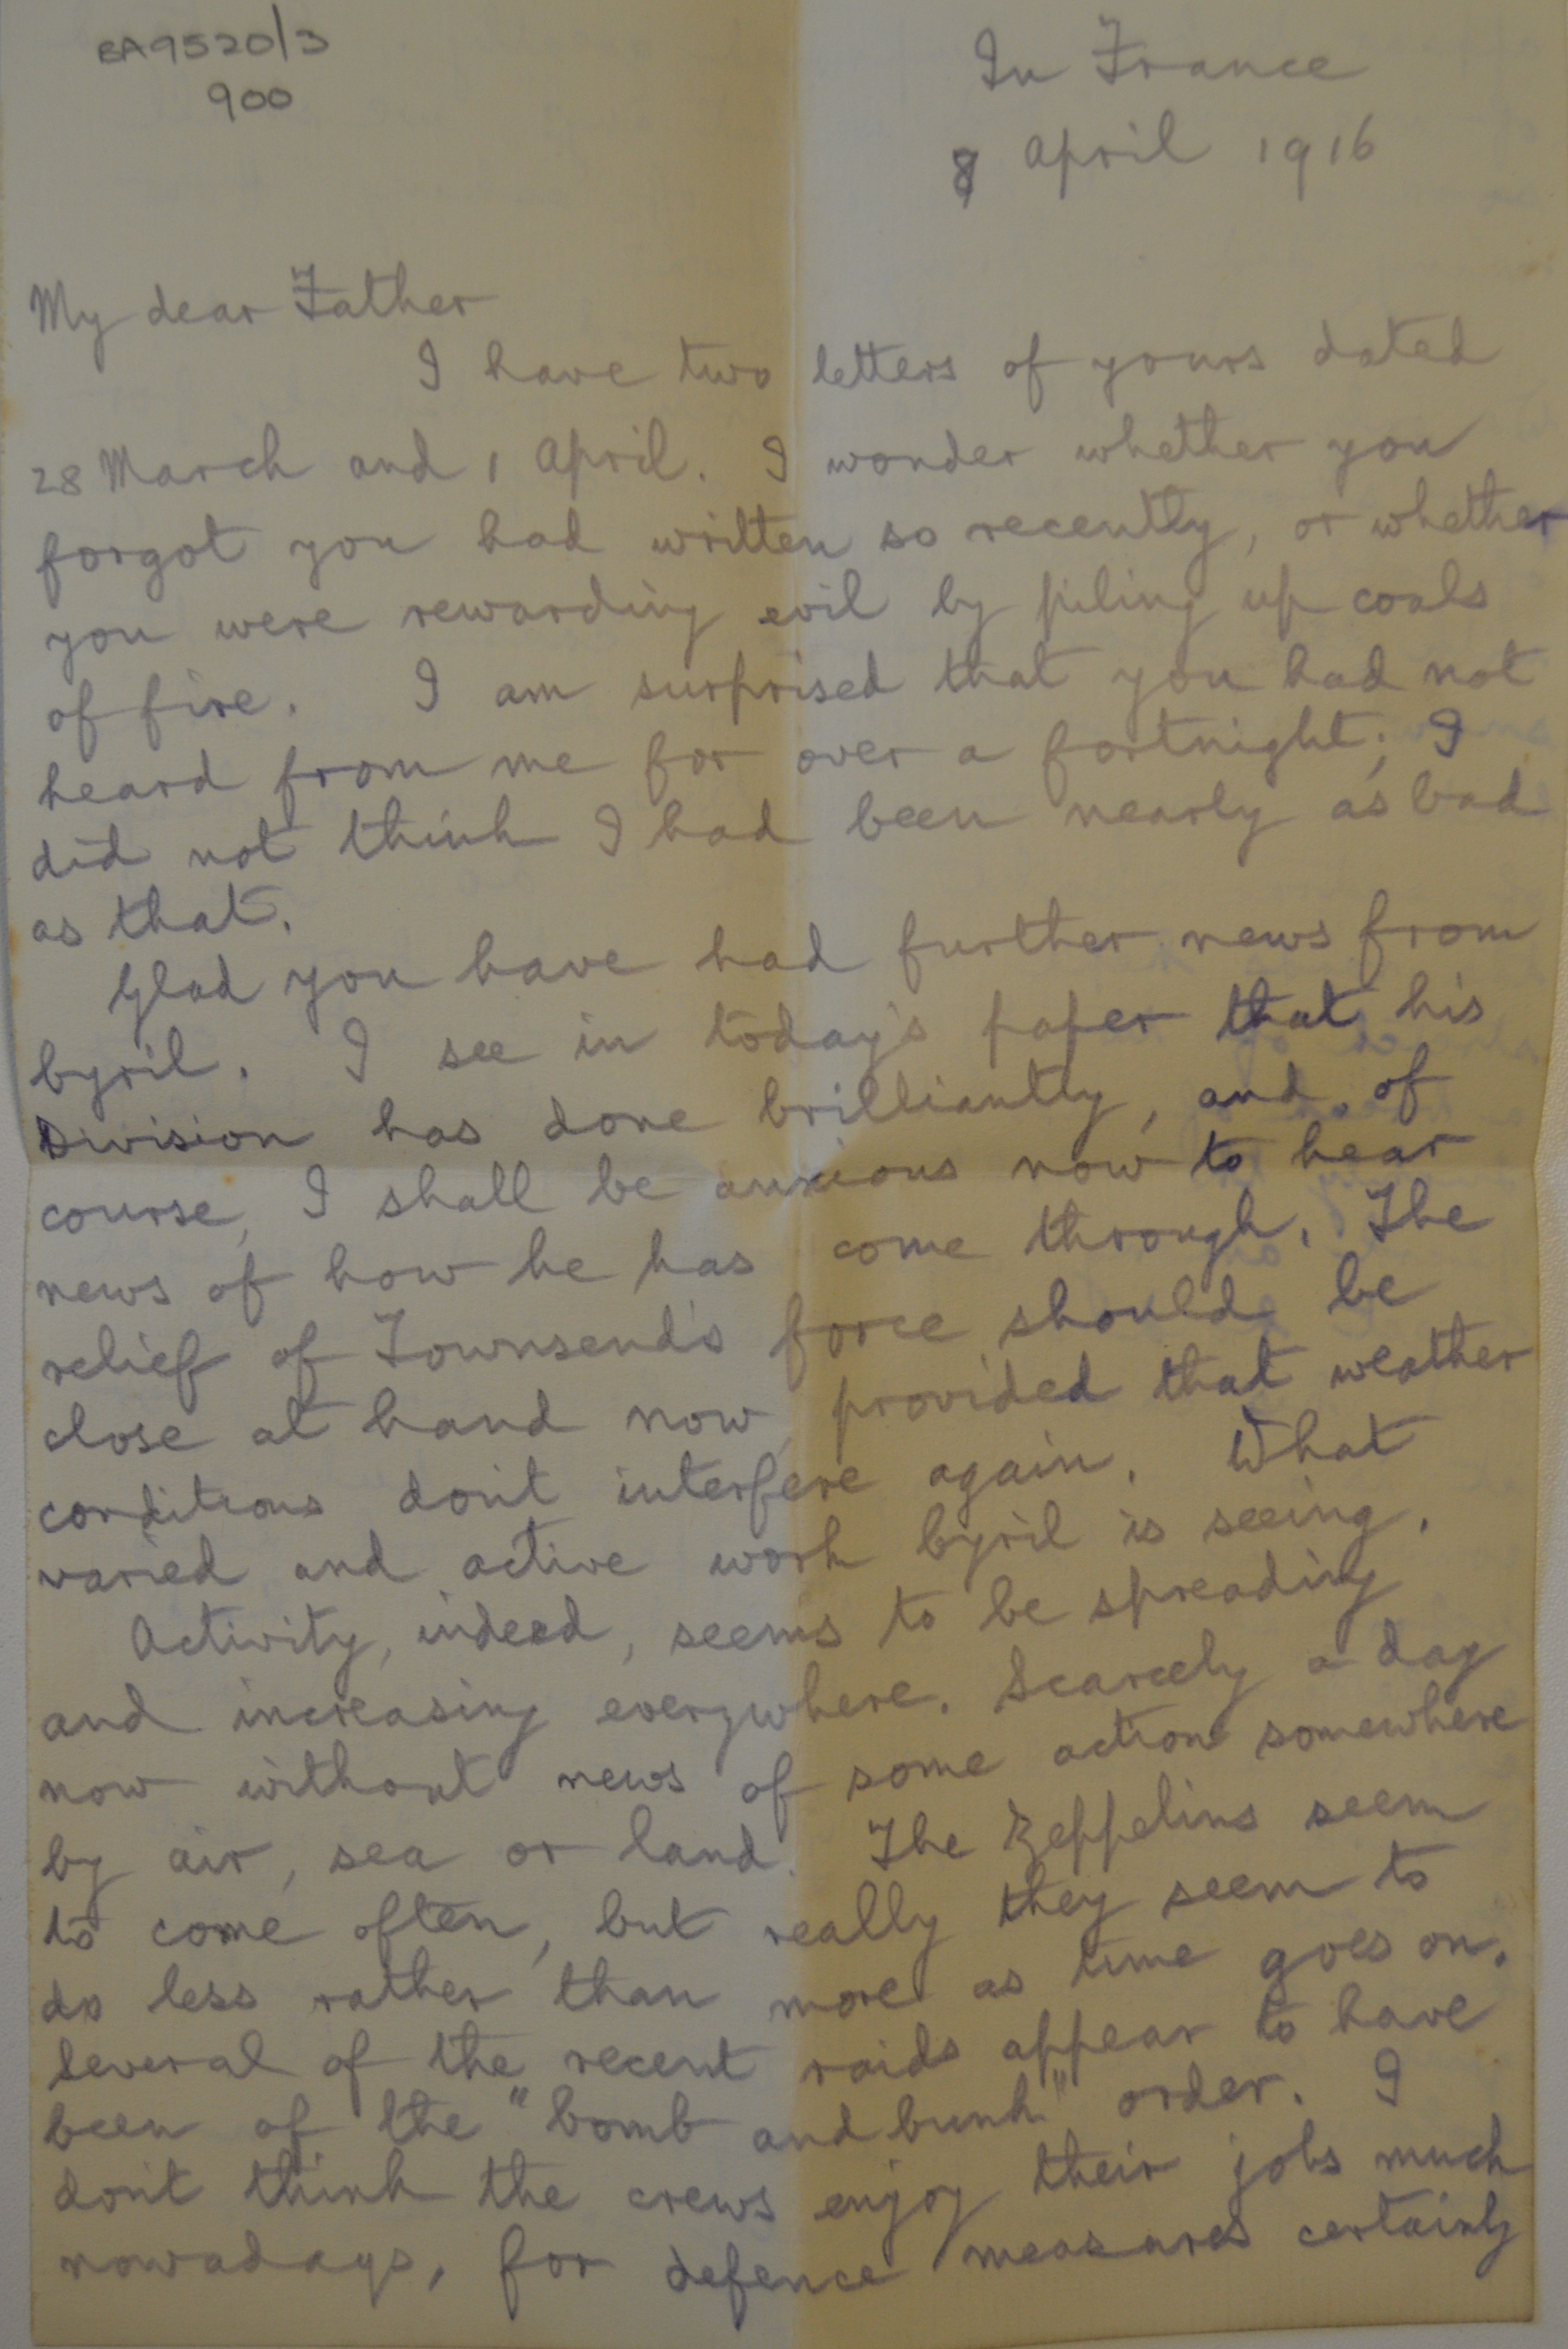 EA9520/3
900
In France
8 April 1916
My dear Father
I have two letters of yours dated
28 March and 1 April. I wonder whether you
forgot you had written so recently, or whether
you were rewarding evil by piling up coals
of fire. I am surprised that you had not
heard from me for over a fortnight; I
did not think I had been nearly as bad
as that.
Glad you have had further news from
Cyril. I see in today's paper that his
Division has done brilliantly, and, of
course, I shall be anxious now to hear
news of how he has come through. The
relief of Townsend's force should be
close at hand now, provided that weather
conditions don't interfere again. What
varied and active work Cyril is seeing.
Activity, indeed, seems to be spreading
and increasing everywhere. Scarcely a day
now without news of some action somewhere
by air, sea or land. The Zeppelins seem
to come often, but really they seem to
do less rather than more as time goes on.
Several of the recent raids appear to have
been of the "bomb and bunk" order. I
don't think the crews enjoy their jobs much
nowadays, for defence measures certainly